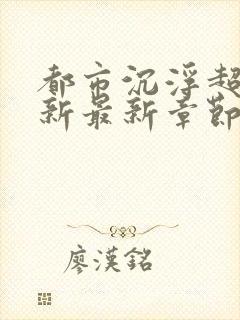 都市沉浮超
新最新章節
廖漢銘